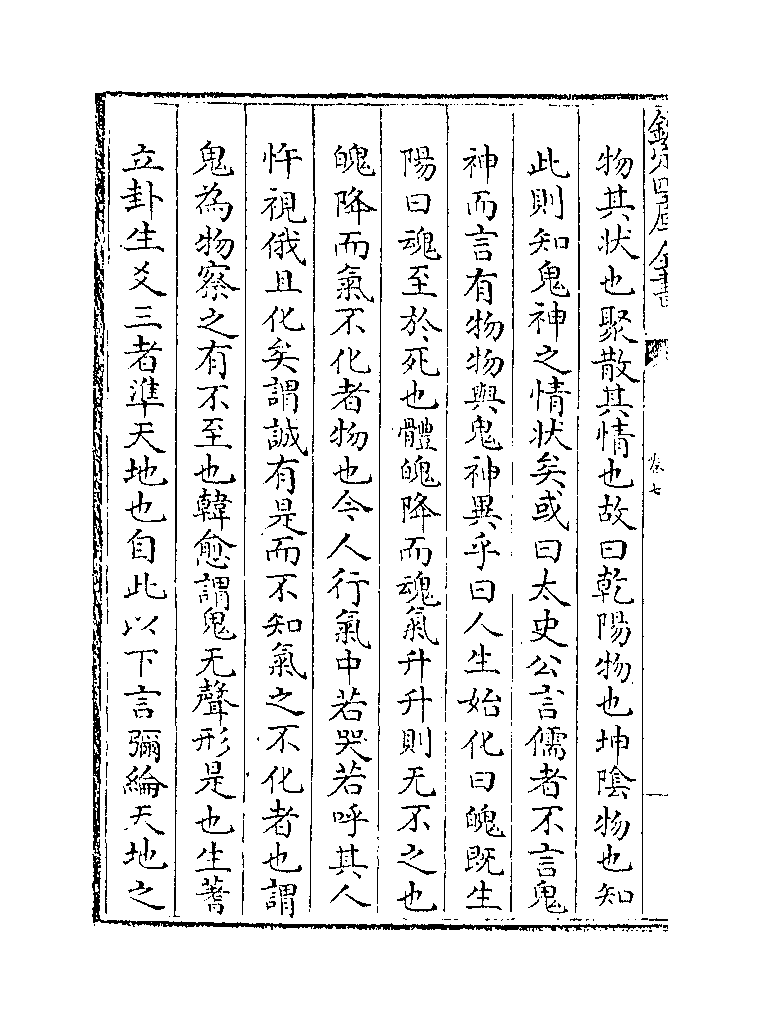 欽定四庫全書
卷七
物其狀也聚散其情也故曰乾陽物也坤陰物也知
此則知鬼神之情狀矣或曰太史公言儒者不言鬼
神而言有物物與鬼神異乎曰人生始化曰魄既生
陽曰魂至於死也體魄降而魂氣升升則无不之也
魄降而氣不化者物也今人行氣中若哭若呼其人
忤視俄且化矣謂誠有是而不知氣之不化者也謂
鬼為物察之有不至也韓愈謂鬼无聲形是也生蓍
立卦生爻三者準天地也自此以下言彌綸天地之